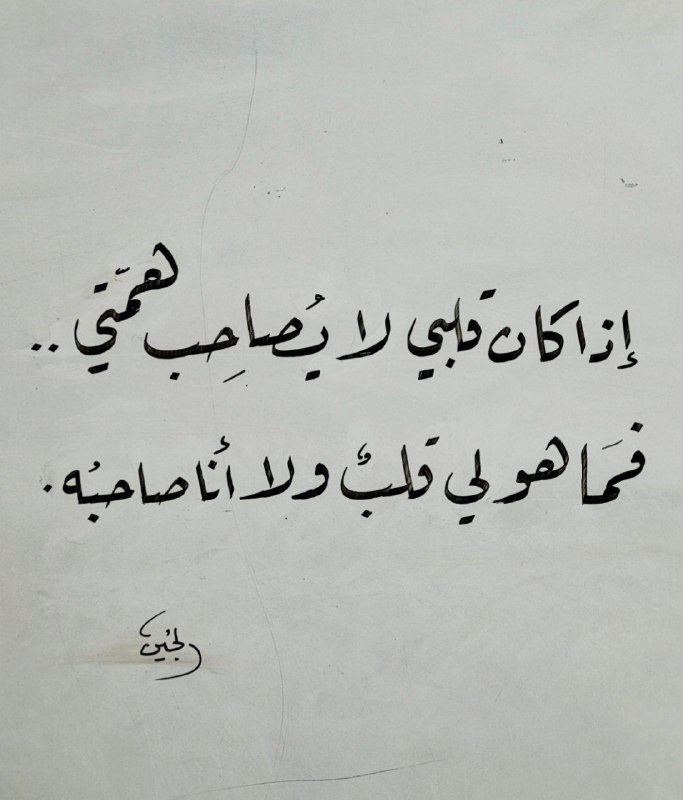 إذا كان قلبي لا يُصاحِب همّتي ..
فمَا هو لي قلبٌ ولا أنا صاحبُه .
لجُين